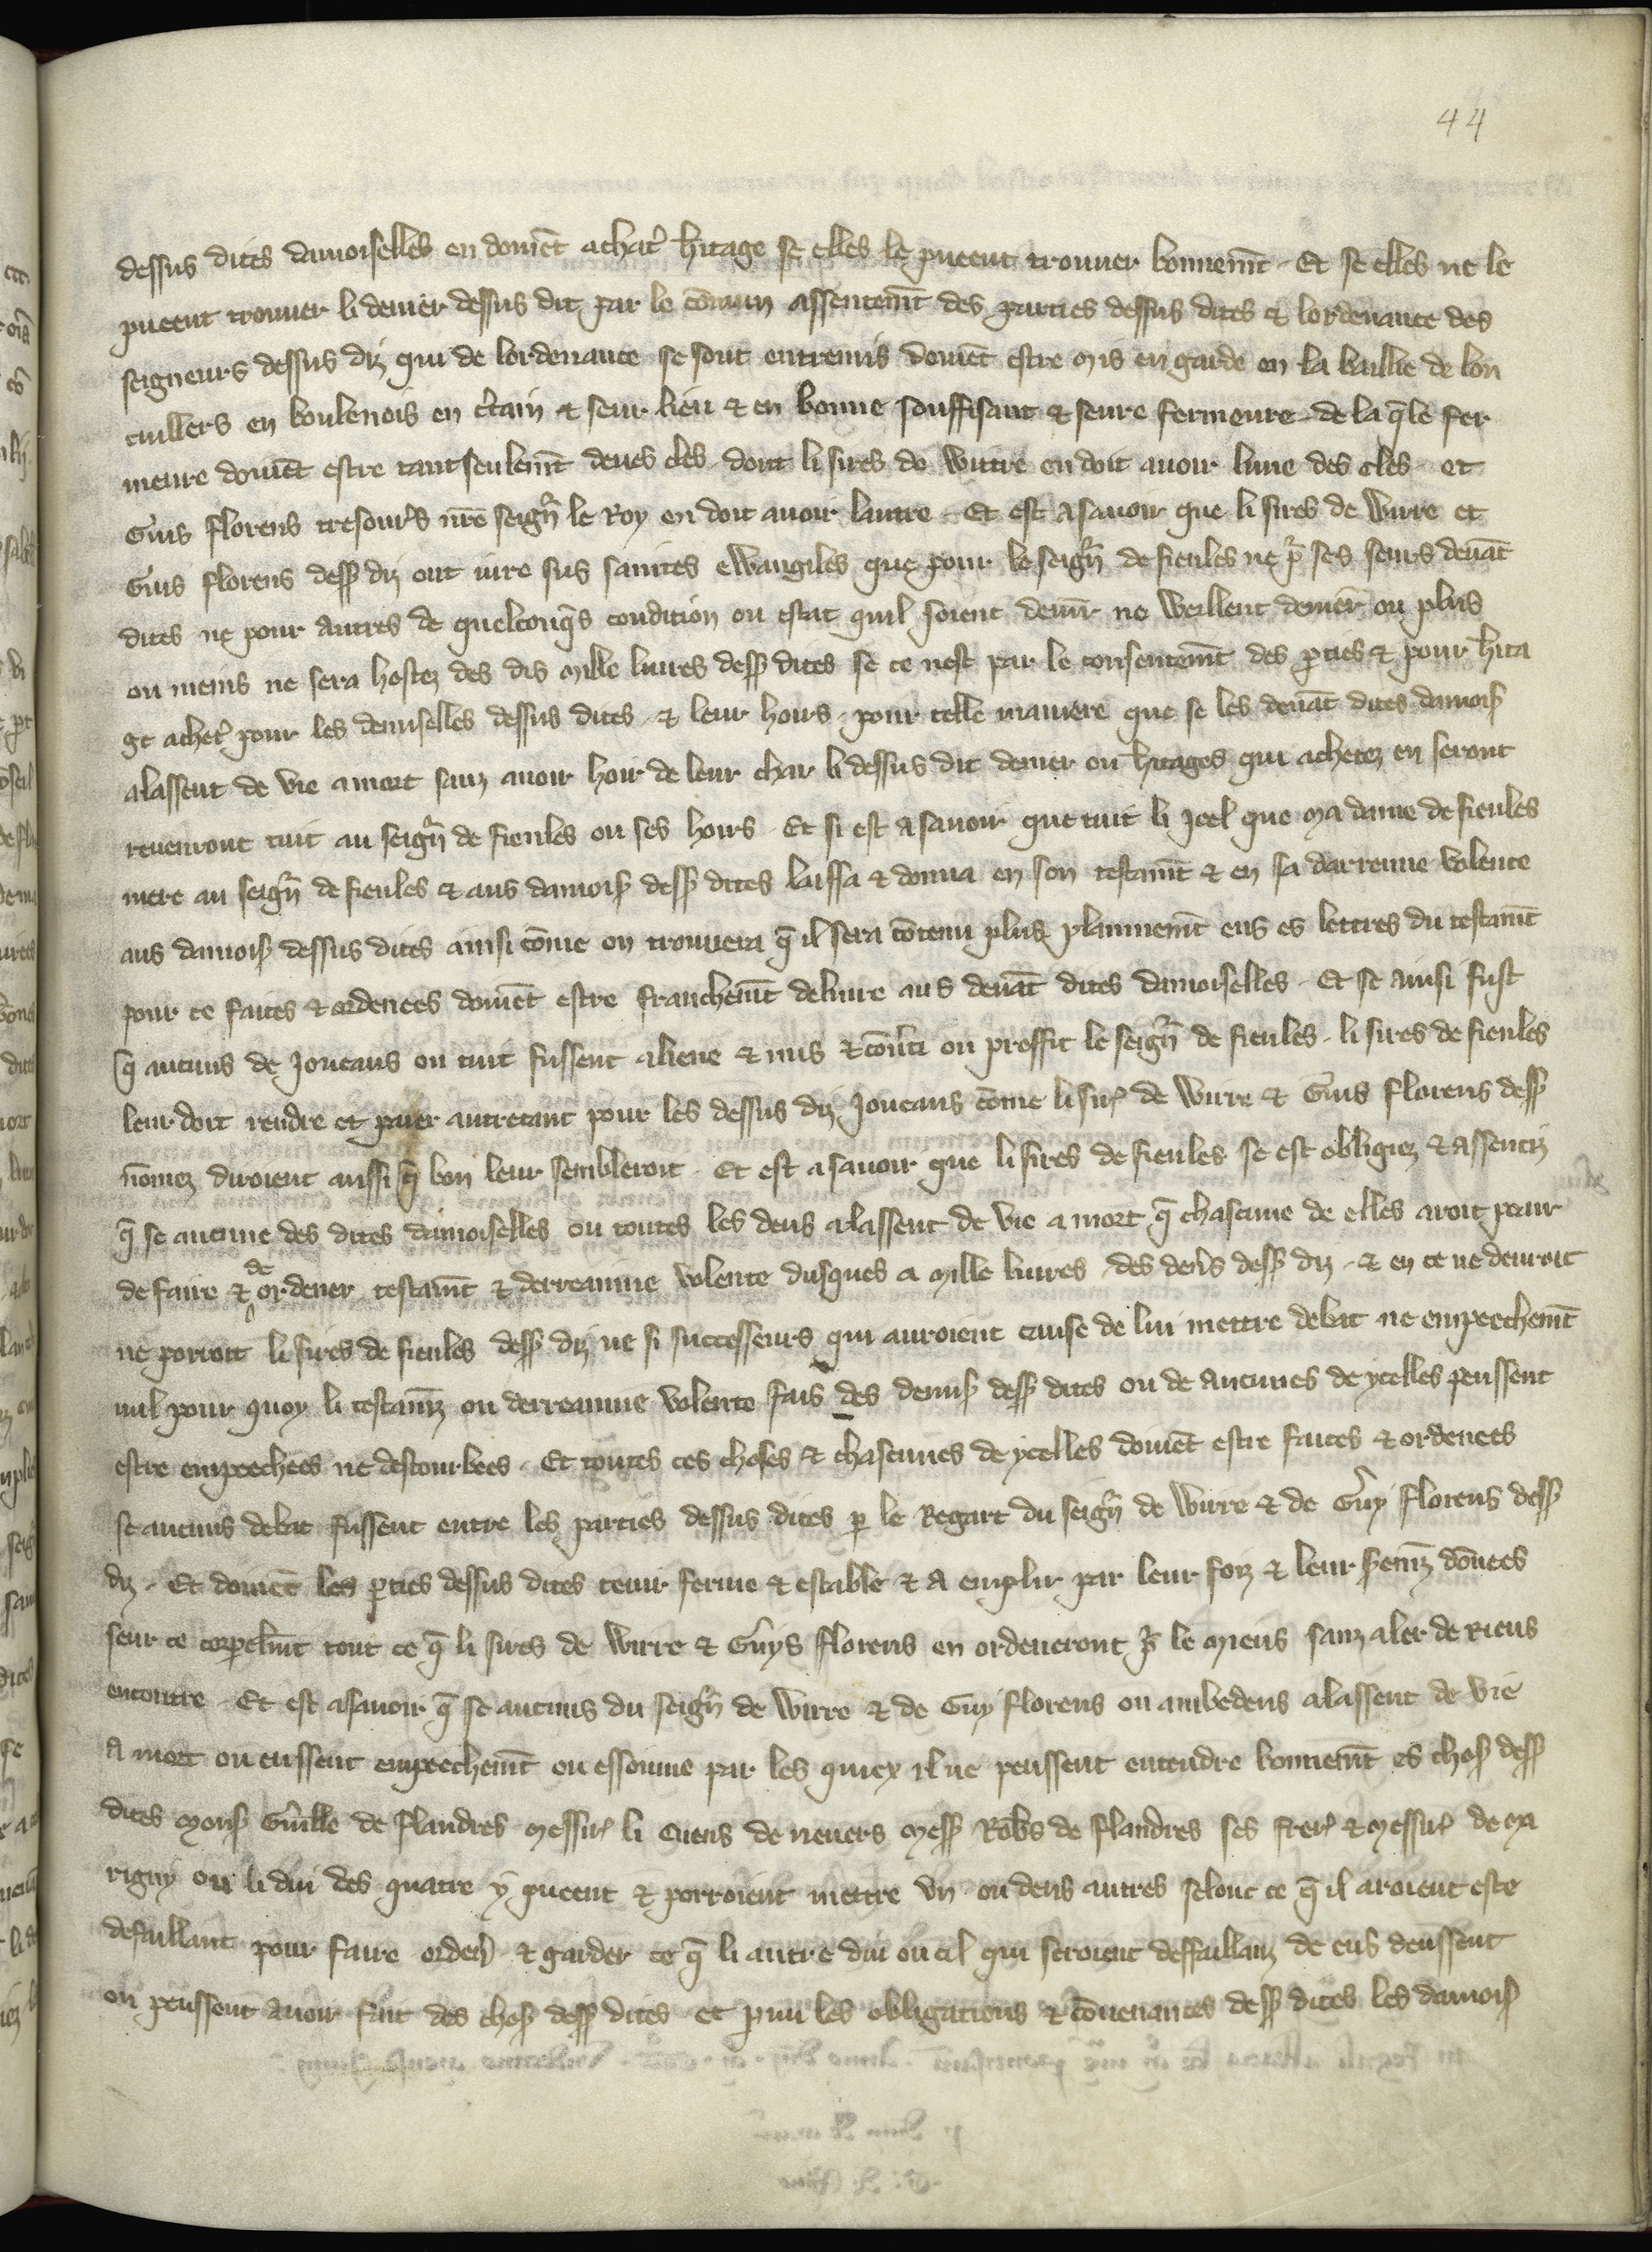 44
dessus dites damoiselles en doiuēt achat᷑ h̄itage se elles le pueent trouuer bonnem̄t . Et se elles ne le
pueent trouuer li denier dessus dit par le cōmun assentem̄t des parties dessus dites & lordenance des
seigneurs dessus diz qui de lordenance se sont entremis doiuēt estre mis en garde en la baillie de lon
cuillers en boulenois en c̄tain & seur lieu & en bonne souffisant & seure fermeure . de la q̄le fer
meure doiuēt estre tant seulem̄t deues cles . dont li sires de Wirre en doit auoir lune des cles . et
Guis florens tresour̄s nr̄e seign̄r le Roy en doit auoir lautre . Et est asauoir que li sires de Wirre et
Guis florens dess̄ diz ont iure sus saintes ewangiles que pour le seign̄r de fienles ne pr̄ ses seurs deuāt
dites ne pour autres de quelconq̄s condition ou estat quil soient denīr ne weillent denier ou plus
ou meins ne sera hostez des dis mille liures dess̄ dites se ce nest par le consentem̄t des p̄ties & pour h̄ita
ge achet᷑ pour les demiselles dessus dites . & leur hoirs . pour telle maniere que se les deuāt dites damois̄
alassent de vie a mort sanz auoir hoir de leur char li dessus dit denier ou h̄itages qui achetez en seront
reuenront tuit au seign̄r de fienles ou ses hoirs . Et si est asauoir que tuit li Joel que ma dame de fienles
mere au seign̄r de fienles & aus damois̄ dess̄ dites laissa & donna en son testam̄t & en sa darrenne volente
aus damois̄ dessus dites ainsi cōme on trouuera q̄ il sera cōtenu plus plainnem̄t ens es lettres du testam̄t
pour ce faites & ordenees doiuēt estre franchem̄t deliure aus deuāt dites damoiselles . Et se ainsi fust
q̄ aucuns de Joueaus ou tuit fussent aliene & mis & cōuerti ou proffit le seign̄r de fienles . li sires de fienles
leur doit rendre et paier autretant pour les dessus diz Joueaus cōme li sir̄ de Wirre & Guis florens dess̄
nōmez diroient aussi q̄ bon leur sembleroit . Et est asauoir que li sires de fienles se est obligiez & assentiz
q̄ se aucune des dites damoiselles ou toutes les deus alassent de vie a mort q̄ chascune de elles aroit pooir
de faire & de ordener testam̄t & derreanne volente dusques a mille liures des den̄s dess̄ diz . & en ce ne deuroit
ne porroit li sires de fienles dess̄ diz ne si successeurs qui auroient cause de lui mettre debat ne empeechem̄t
nul pour quoy li testam̄z ou derreanne volente fais des demis̄ dess̄ dites ou de aucunes de ycelles peussent
estre empeechees ne destourbees . Et toutes ces choses & chascunes de ycelles doiuēt estre faites & ordenees
se aucuns debat fussent entre les parties dessus dites p̄ le Regart du seign̄r de Wirre & de Guy florens dess̄
diz . Et doiuēt les p̄ties dessus dites tenir ferme & estable & a emplir par leur foiz & leur serem̄z dōnees
seur ce corpelm̄t tout ce q̄ li sires de Wirre & Guys florens en ordeneront pr̄ le miens sanz aler de riens
encontre . Et est asauoir q̄ se aucuns du seign̄r de Wirre & de Guy florens ou ambedeus alassent de vie
a mort ou eussent empeechem̄t ou essoinne par les quiex il ne peussent entendre bonnem̄t es chos̄ dess̄
dites mons̄ Guille de flandres messir̄ li Cuens de neuers mess̄ Rob̄s de flandres ses frer̄ & messir̄ de ma
rigny ou li dui des quatre y pueent & porroient mettre vn ou deus autres selonc ce q̄ il aroient este
defaillant pour faire orden̄ & garder ce q̄ li autre dui ou cil qui seroient deffaillanz de eus deussent
ou peussent auoir fait des chos̄ dess̄ dites et p̄mi les obligations & cōuenances dess̄ dites les damois̄